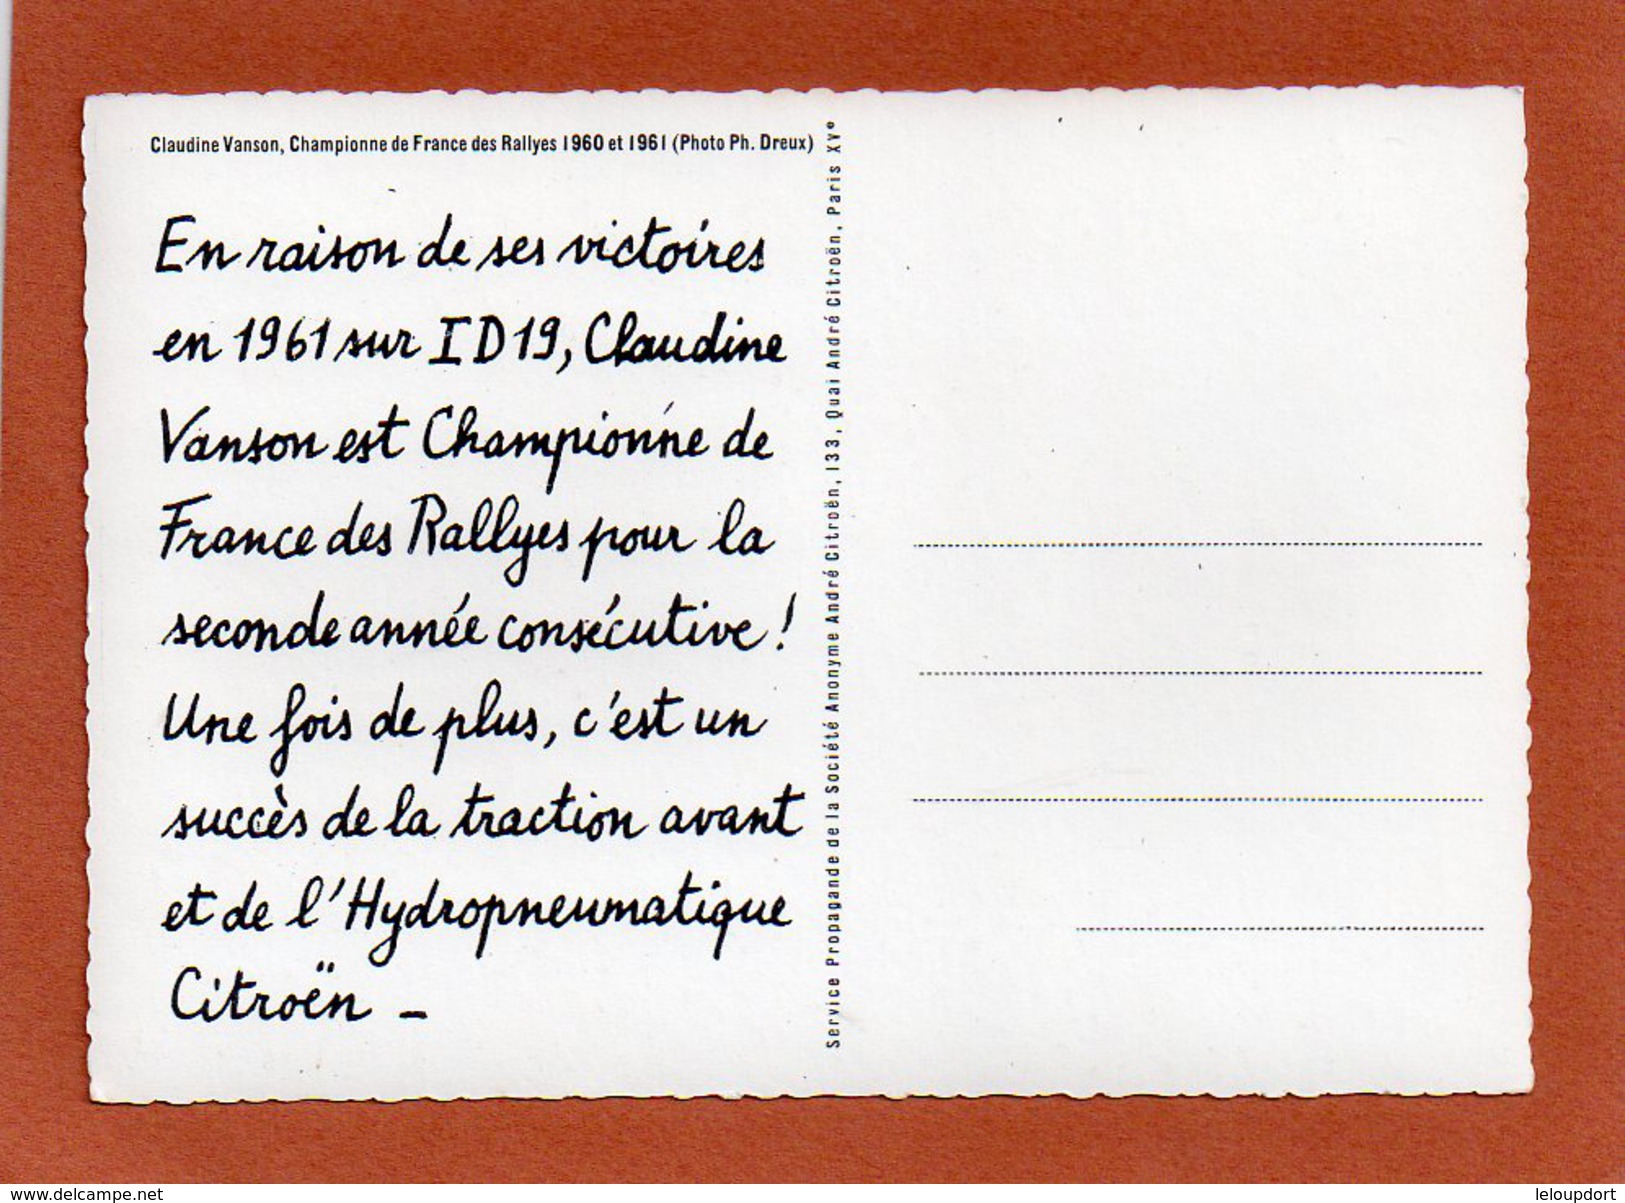 Claudine Vanson, Championne de France des Rallyes 1960 et 1961 (Photo Ph. Dreux)
En raison de ses victoires
en 1961 sur ID19, Claudine
Vanson est Championne de
France des Rallyes pour la
seconde année consécutive !
Une fois de plus, c'est un
succès de la traction avant
et de l'Hydropneumatique
Citroën –
Service Propagande de la Société Anonyme André Citroën, 133, Quai André Citroën, Paris XVe
www.delcampe.net
leloupdort